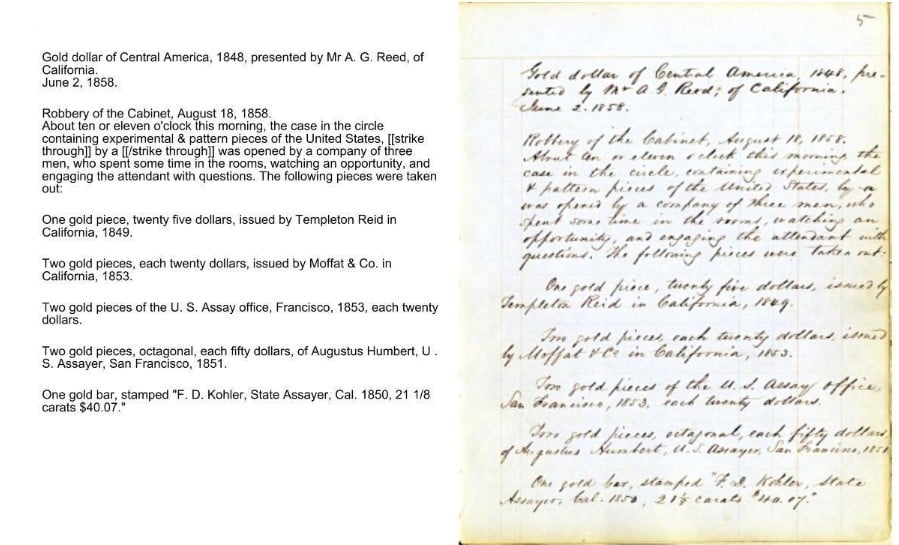 Gold dollar of Central America, 1848, presented by Mr A. G. Reed, of
California.
June 2, 1858.
Robbery of the Cabinet, August 18, 1858.
About ten or eleven o'clock this morning, the case in the circle
containing experimental & pattern pieces of the United States, [[strike
through]] by a [[/strike through]] was opened by a company of three
men, who spent some time in the rooms, watching an opportunity, and
engaging the attendant with questions. The following pieces were taken
out:
One gold piece, twenty five dollars, issued by Templeton Reid in
California, 1849.
Two gold pieces, each twenty dollars, issued by Moffat & Co. in
California, 1853.
Two gold pieces of the U. S. Assay office, Francisco, 1853, each twenty
dollars.
Two gold pieces, octagonal, each fifty dollars, of Augustus Humbert, U .
S. Assayer, San Francisco, 1851.
One gold bar, stamped "F. D. Kohler, State Assayer, Cal. 1850, 21 1/8
carats $40.07."
5
Gold dollar of Central America, 1848, pre-
sented by Mr A. G. Reed, of California.
June 2. 1858.
Robbery of the Cabinet, August 18, 1858.
About ten or eleven o'clock this morning, the
case in the circle, containing experimental
& pattern pieces of the United States, by a
was opened by a company of three men, who
spent some time in the rooms, watching an
opportunity, and engaging the attendant with
questions. The following pieces were taken out:
One gold piece, twenty five dollars, issued by
Templeton Reid in California, 1849.
Two gold pieces, each twenty dollars, issued
by Moffat & Co in California, 1853.
Two gold pieces of the U. S. Assay office,
San Francisco, 1853, each twenty dollars.
Two gold pieces, octagonal, each fifty dollars,
of Augustus Humbert, U. S. Assayer, San Francisco, 1851.
One gold bar, stamped "F. D. Kohler, State
Assayer, Cal. 1850, 21 1/8 carats $40.07."